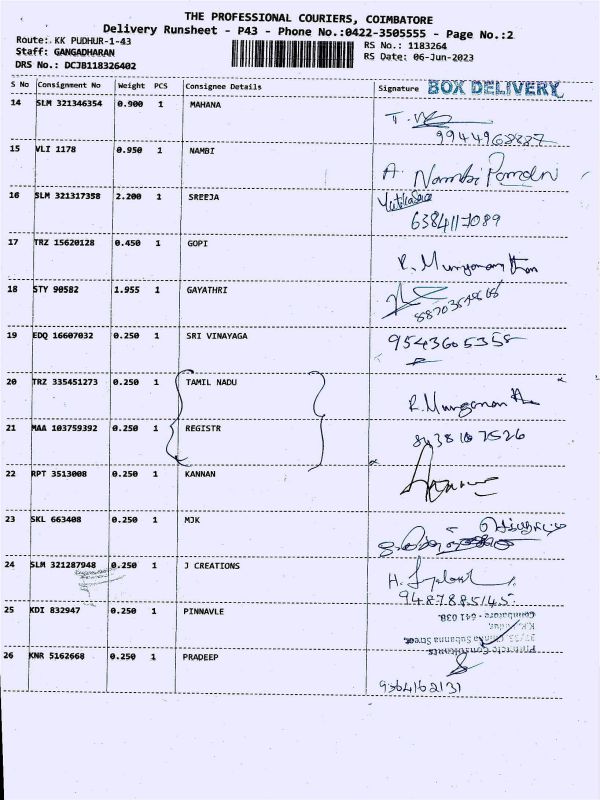 THE PROFESSIONAL COURIERS, COIMBATORE
Delivery Runsheet - P43 - Phone No.:0422-3505555 - Page No.:2
Route: KK PUDHUR-1-43
RS No.: 1183264
Staff: GANGADHARAN
RS Date: 06-Jun-2023
DRS No.: DCJB118326402
S No Consignment No Weight PCS Consignee Details Signature BOX DELIVERY
14 SLM 321346354 0.900 1 MAHANA
9944968887
15 VLI 1178 0.950 1 NAMBI
A. Nambi
16 SLM 321317358 2.200 1 SREEJA
6384117089
17 TRZ 15620128 0.450 1 GOPI
18 STY 90582 1.955 1 GAYATHRI
19 EDQ 16607032 0.250 1 SRI VINAYAGA
9543605358
20 TRZ 335451273 0.250 1 TAMIL NADU
21 MAA 103759392 0.250 1 REGISTR
22 RPT 3513008 0.250 1 KANNAN
23 SKL 663408 0.250 1 MJK
24 SLM 321287948 0.250 1 J CREATIONS
9487885145
25 KDI 832947 0.250 1 PINNAVLE
Coimbatore - 641 038.
26 KNR 5162668 0.250 1 PRADEEP
9364162131